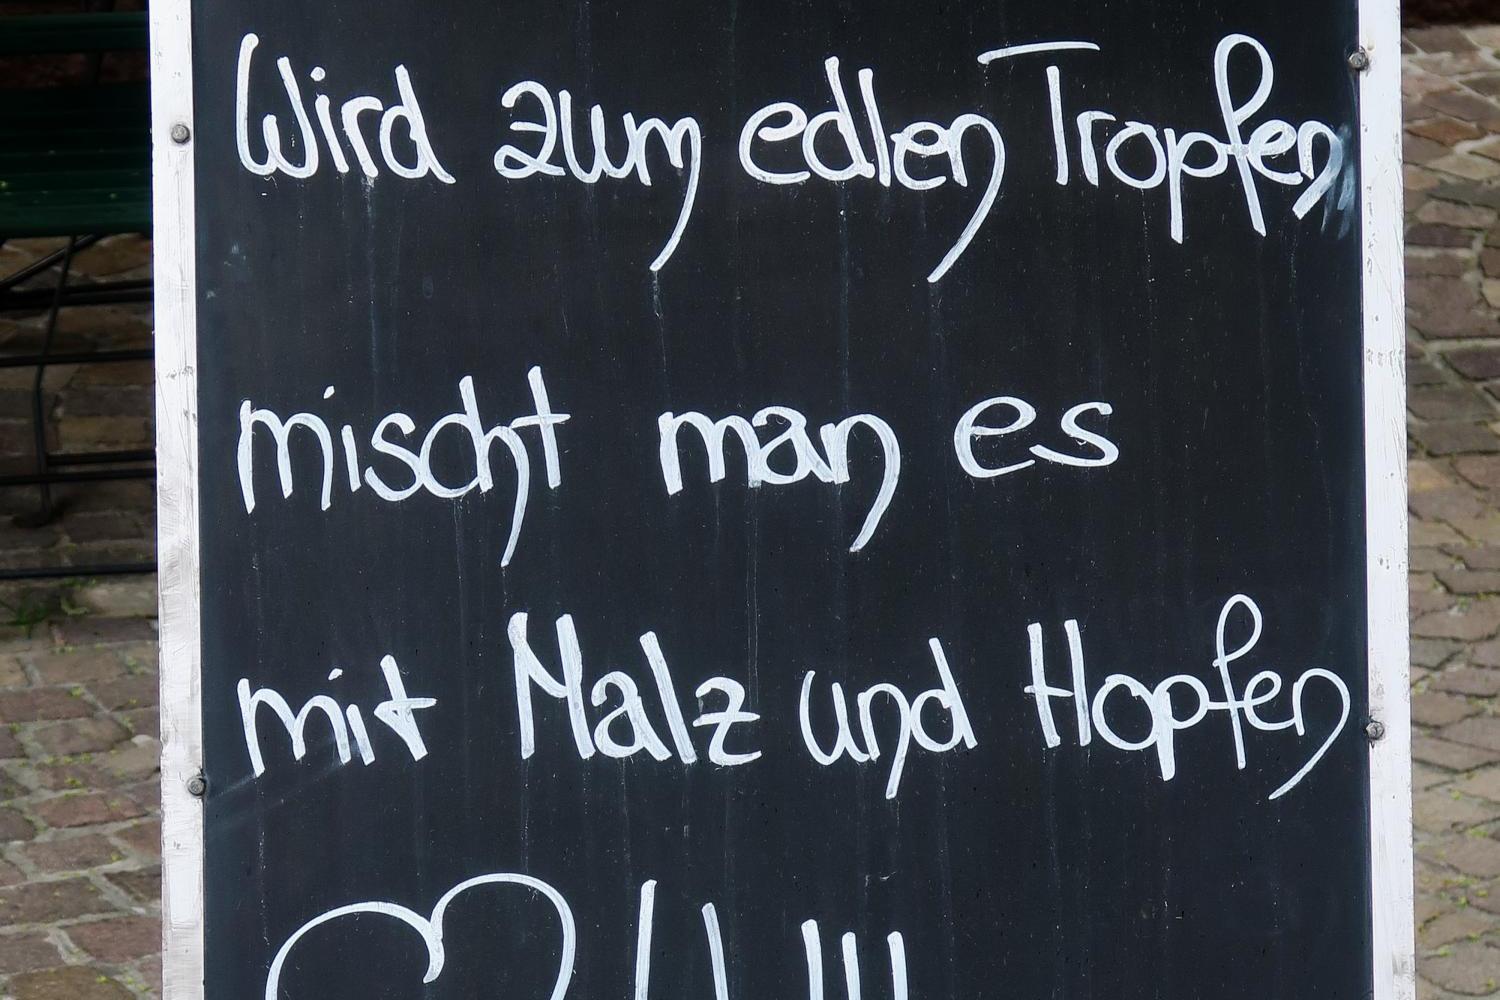 Wird zum edlen Tropfen
mischt man es
mit Malz und Hopfen